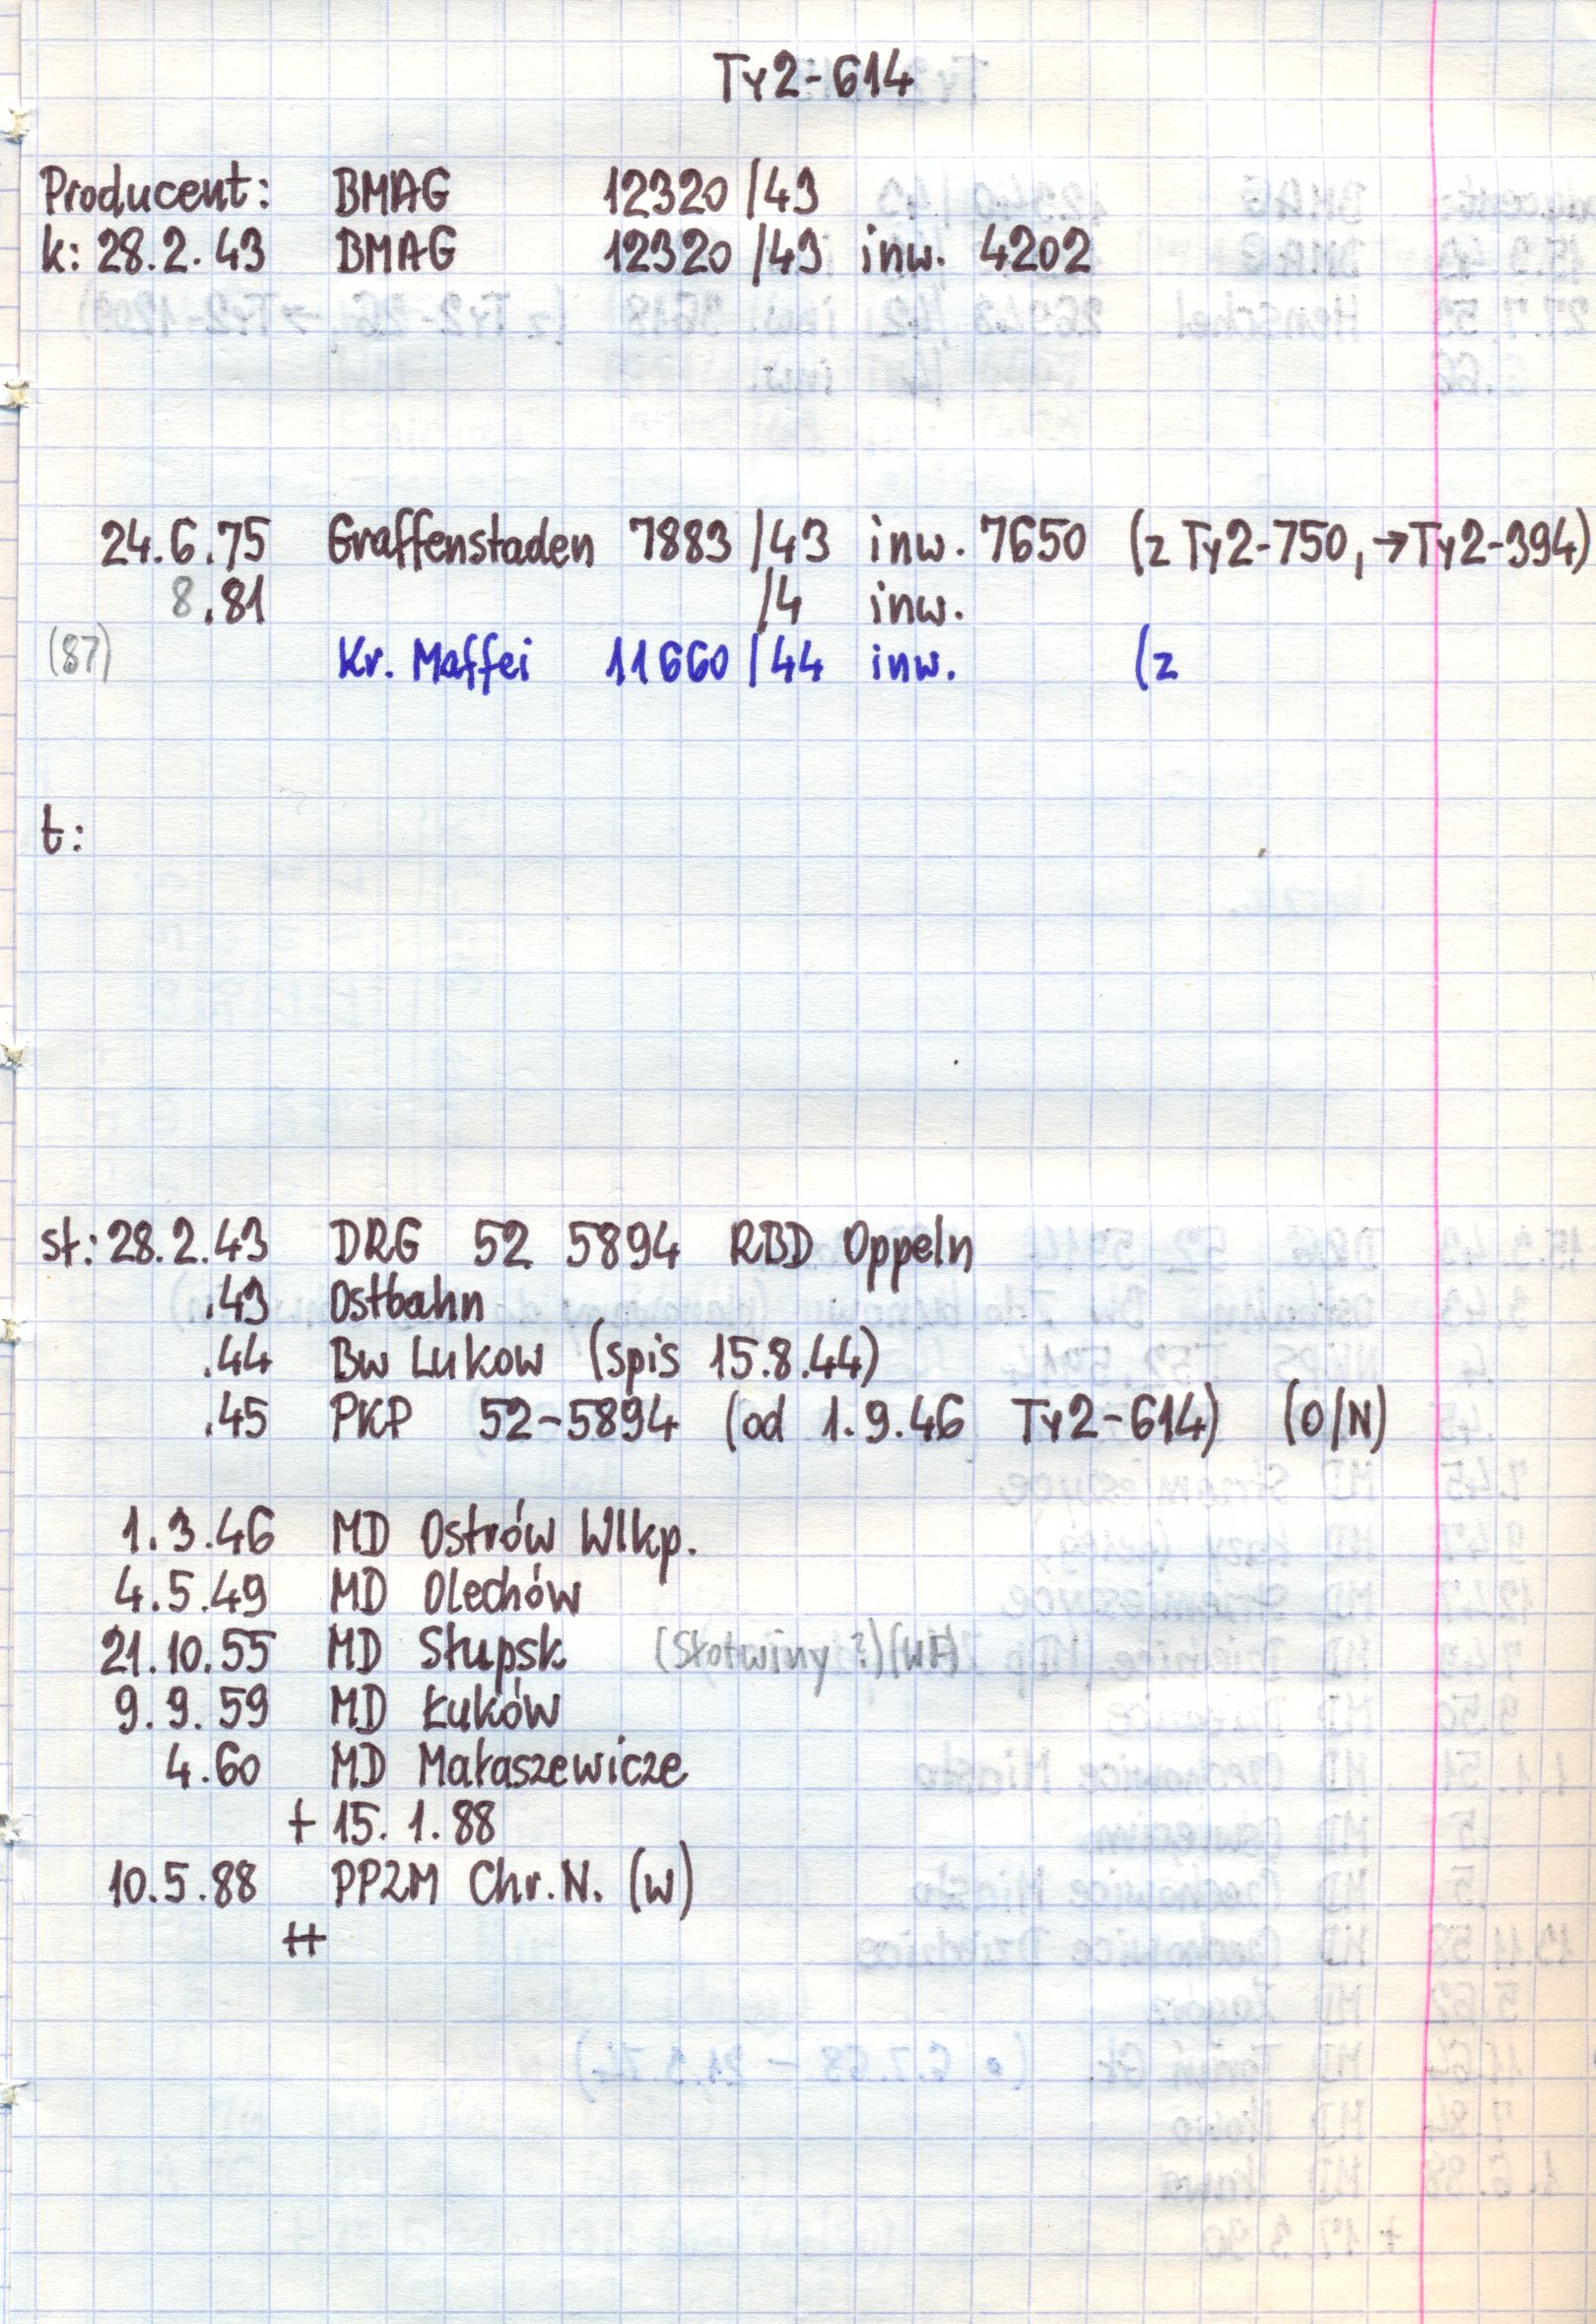 Ty2-614
Producent: BMAG 12320/43
k: 28.2.43 BMAG 12320/43 inw. 4202
24.6.75 Graffenstaden 7883/43 inw. 7650 (z Ty2-750, →Ty2-394)
8.81 /4 inw.
(87) Kr. Maffei 11660/44 inw. (z
t:
st: 28.2.43 DRG 52 5894 RBD Oppeln
.43 Ostbahn
.44 Bw Lukow (spis 15.8.44)
.45 PKP 52-5894 (od 1.9.46 Ty2-614) (O/N)
1.3.46 MD Ostrów Wlkp.
4.5.49 MD Olechów
21.10.55 MD Słupsk (Słotwiny ?)
9.9.59 MD Łuków
4.60 MD Małaszewicze
+ 15.1.88
10.5.88 PPZM Chr.N. (W)
++